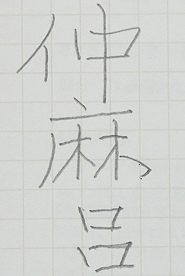 仲麻呂